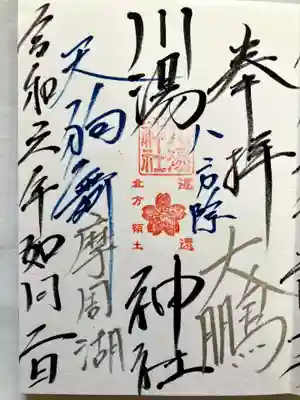 奉拝
大鵬
八方除
川湯神社
北方領土
返還
天駒
摩周湖
令和元年如月二日